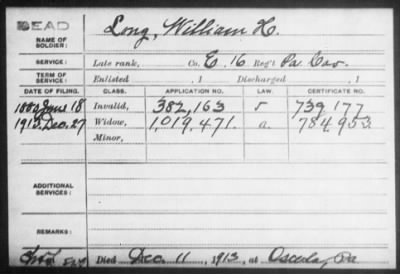 DEAD
NAME OF SOLDIER: Long, William H.
SERVICE: Late rank, Co. E. 16 Reg't Pa. Cav.
TERM OF SERVICE: Enlisted , 1 Discharged , 1
DATE OF FILING. CLASS. APPLICATION NO. LAW. CERTIFICATE NO.
1880 June 18 Invalid, 382,163 739,177
1913. Dec. 27 Widow, 1,019,471. a. 784,953.
Minor,
ADDITIONAL SERVICES:
REMARKS:
Died Dec. 11, 1913, at Osceola, Pa